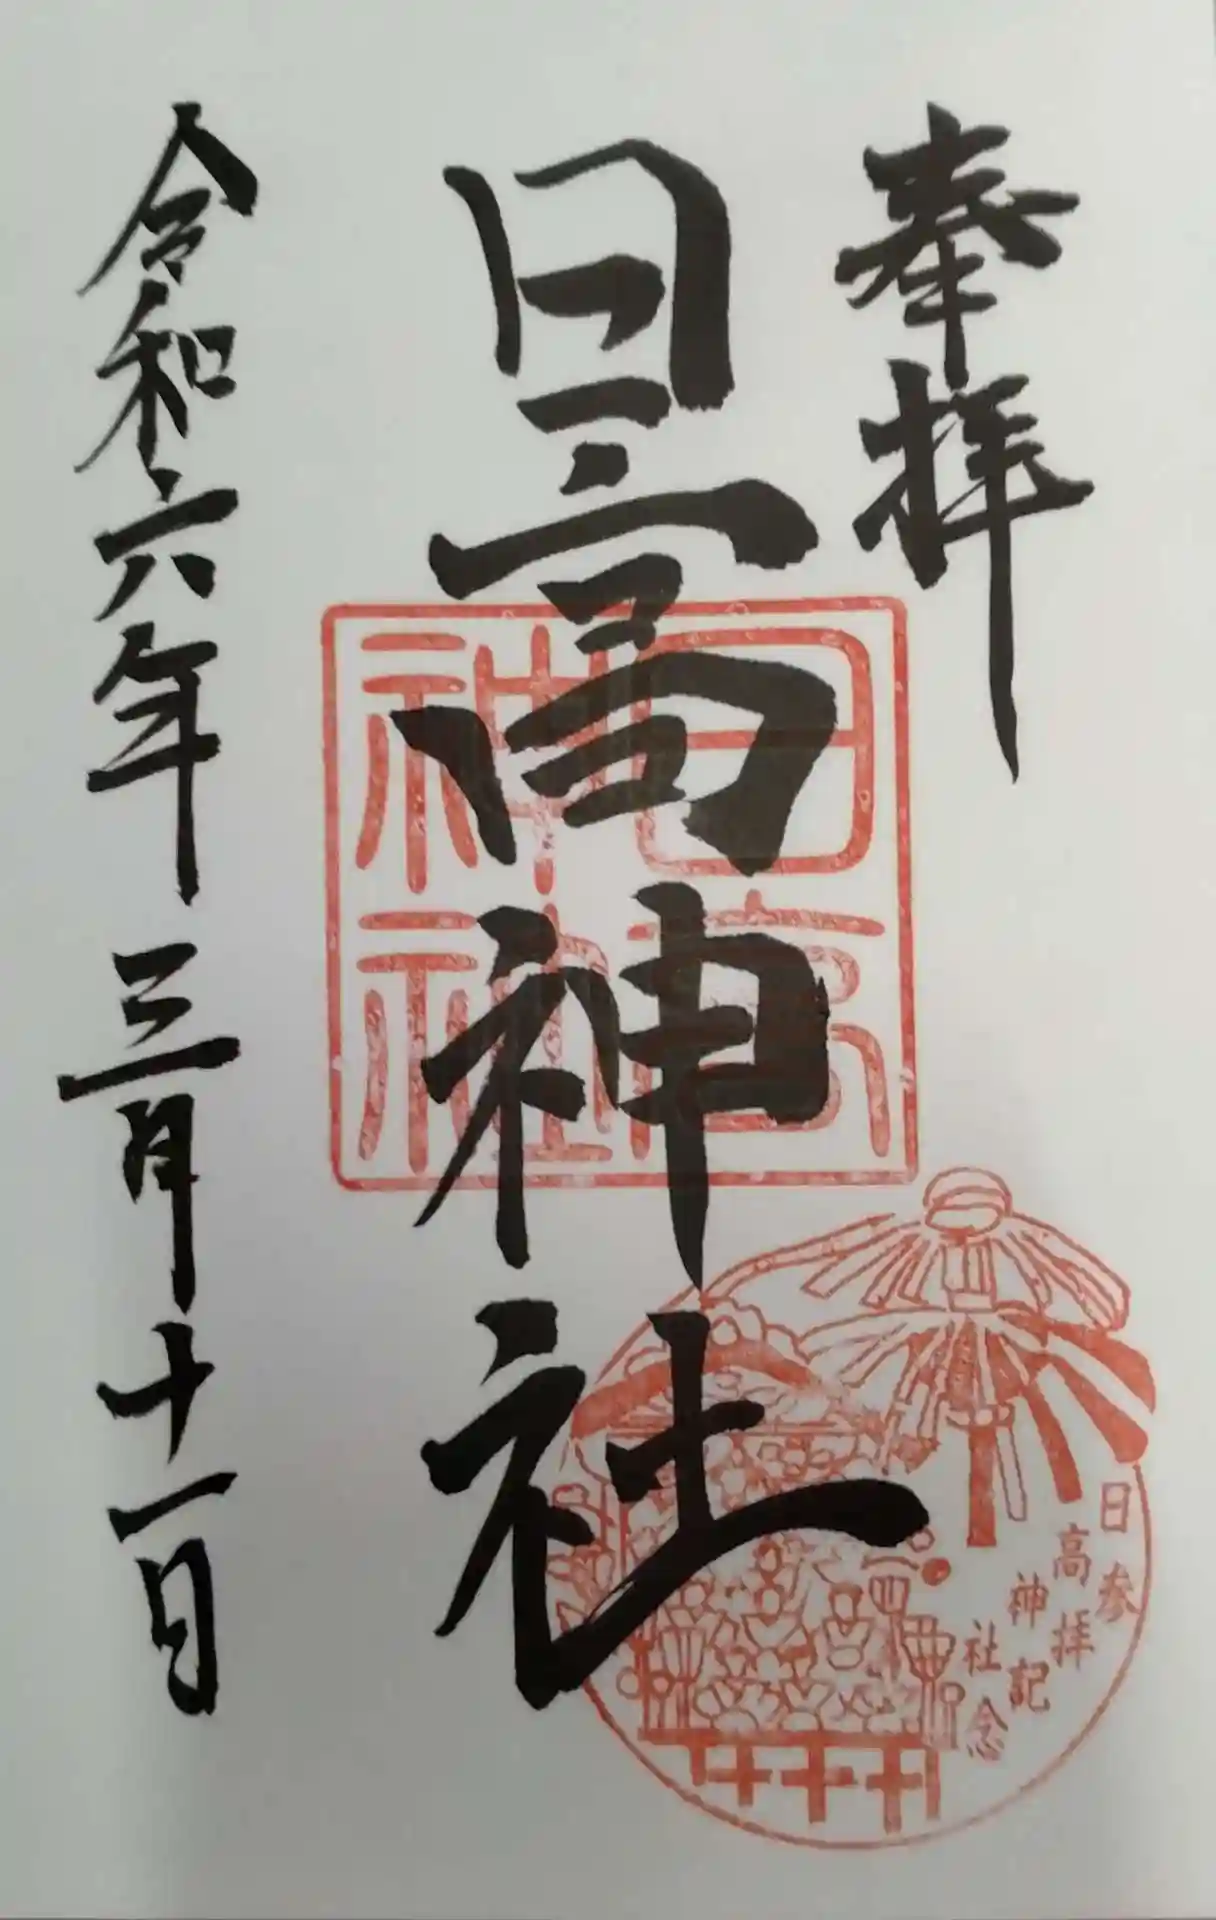 奉拝
日高神社
令和六年三月十一日
日高神社
日高神社
参拝記念